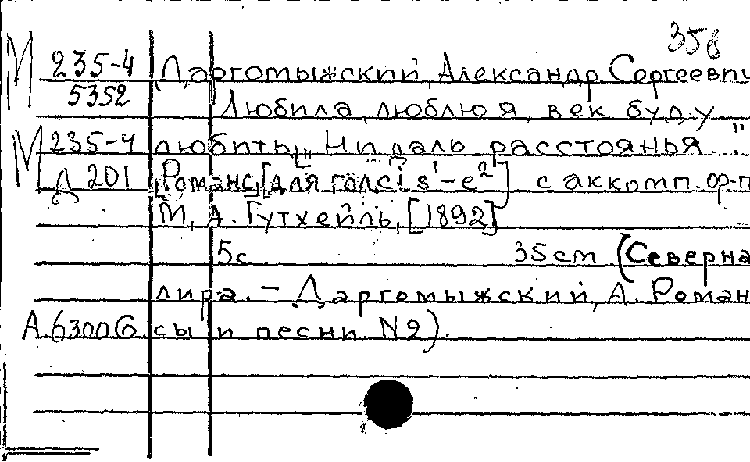 358
М 235-4 Даргомыжский, Александр Сергеевич
5352 Любила, люблю я, век буду
М 235-4 любить! Ни даль расстоянья..."
Д 201 Романс [для голоса с аккомп. ф-п
М., А. Гутхейль, [1892]
5с 35cm (Северна
лира. – Даргомыжский, А. Роман
А.63006 сы и песни N2).